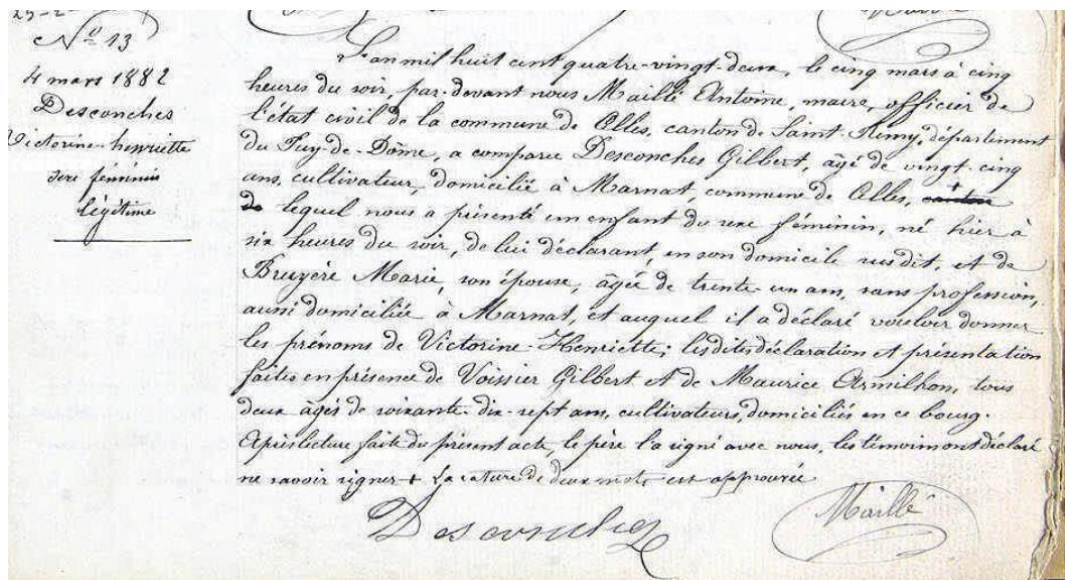 Nº 13
4 mars 1882
Desconches
Victorine-henriette
sexe féminin
légitime
L'an mil huit cent quatre-vingt-deux, le cinq mars à cinq
heures du soir, par-devant nous Maillé Antoine, maire, officier de
l'état civil de la commune de Olles, canton de Saint-Rémy, département
du Puy-de-Dôme, a comparu Desconches Gilbert, âgé de vingt-cinq
ans, cultivateur, domicilié à Marnat, commune de Olles, canton +
de lequel nous a présenté un enfant du sexe féminin, né hier à
six heures du soir, de lui déclarant, en son domicile susdit, et de
Bruyère Marie, son épouse, âgée de trente-un ans, sans profession,
aussi domiciliée à Marnat, et auquel il a déclaré vouloir donner
les prénoms de Victorine-Henriette; lesdites déclaration et présentation
faites en présence de Voissier Gilbert et de Maurice Armilhon, tous
deux âgés de soixante-dix-sept ans, cultivateurs, domiciliés en ce bourg.
Après lecture faite du présent acte, le père l'a signé avec nous, les témoins ont déclaré
ne savoir signer + La rature de deux mots est approuvée
Desconches
Maillé